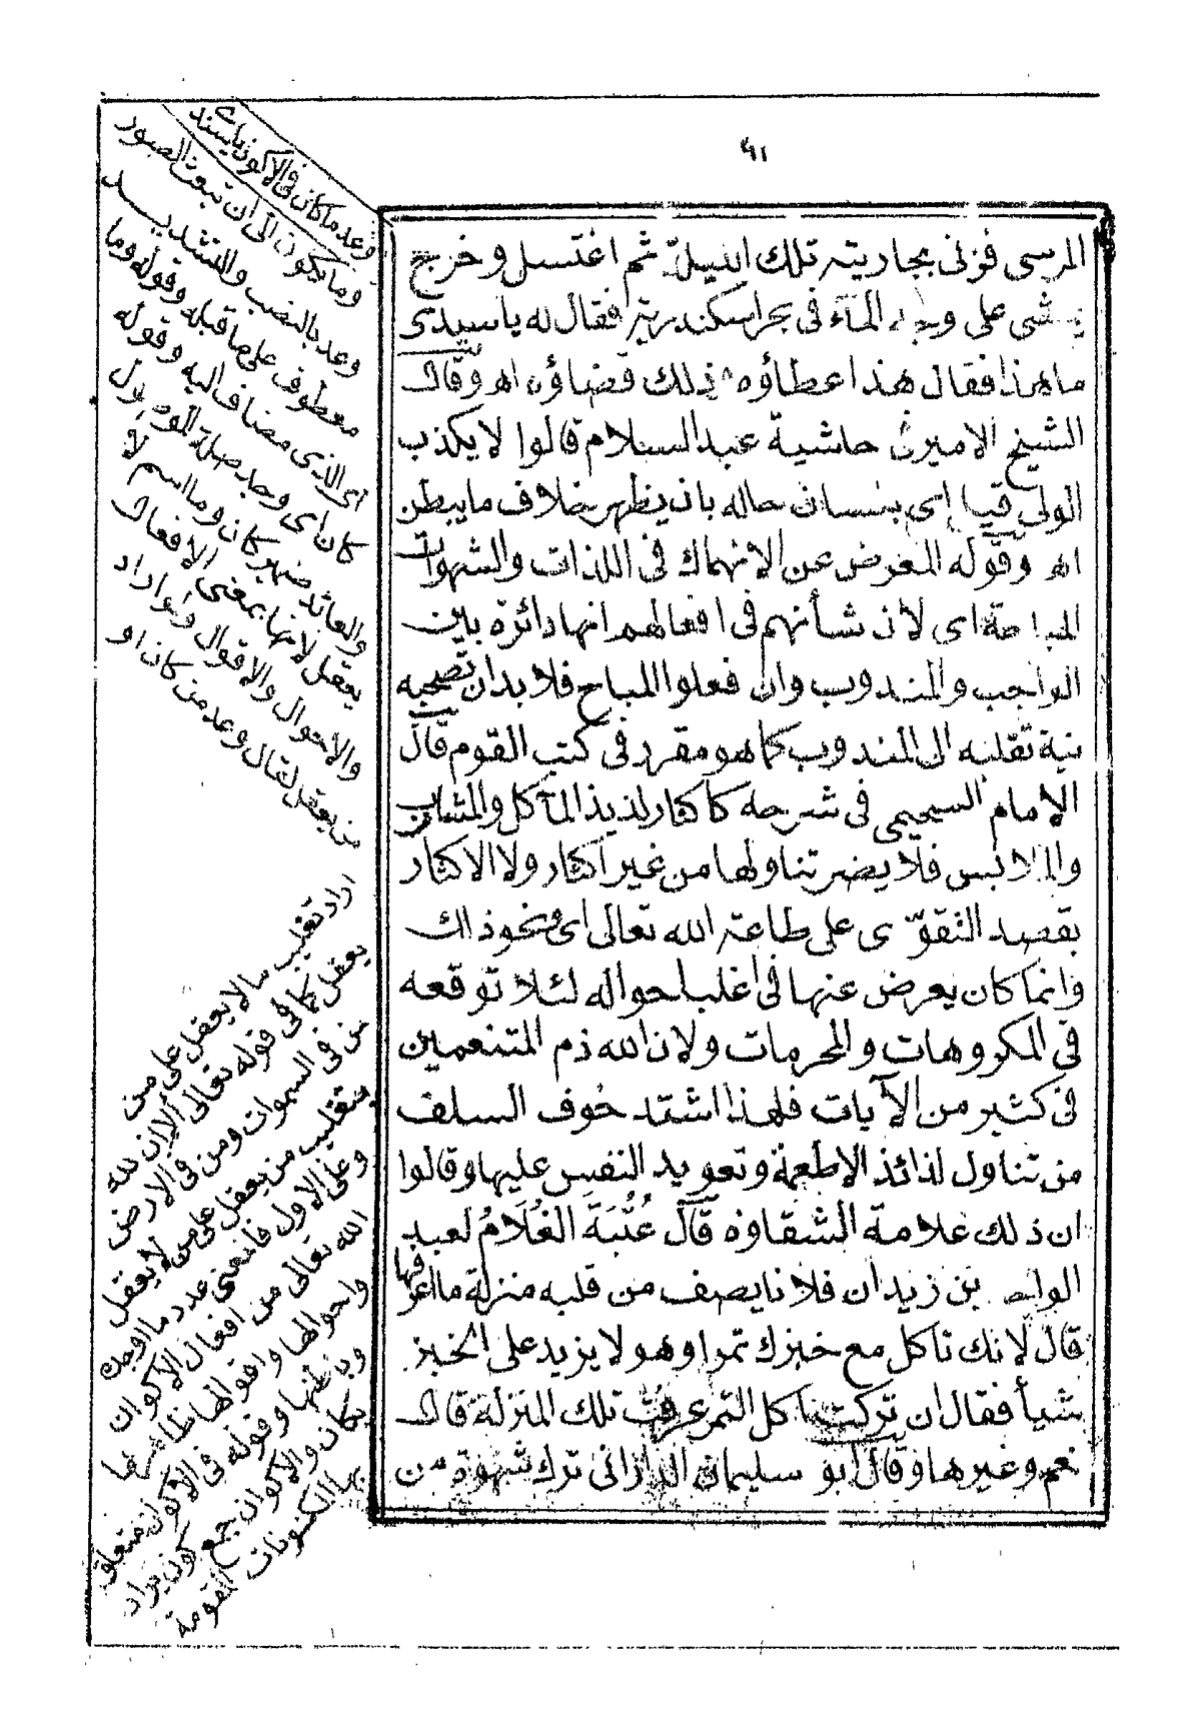 ٩١
المرسى فزنى بجاريته تلك الليلة ثم اغتسل وخرج
يمشى على وجه المآء فى بحر اسكندرية فقال له ياسيدى
ماهذا فقال هذا اعطاؤه ذلك قضاؤه اه وقال
الشيخ الامير فى حاشية عبدالسلام قالوا لا يكذب
الولى قيل اى بلسان حاله بان يظهر خلاف مايبطن
اه وقوله المعرض عن الانهماك فى اللذات والشهوات
المباحة اى لان شأنهم فى افعالهم انها دائرة بين
الواجب والمندوب وان فعلوا المباح فلا بد ان تصحبه
نية تقلبه الى المندوب كما هو مقرر فى كتب القوم قال
الامام السحيمى فى شرحه كاكثار لذيذ المآكل والمشارب
والملابس فلا يضر تناولها من غير اكثار ولا الاكثار
بقصد التقوّى على طاعة الله تعالى اى ونحو ذلك
وانما كان يعرض عنها فى اغلب احواله لئلا توقعه
فى المكروهات والمحرمات ولان الله ذم المتنعمين
فى كثير من الآيات فلهذا اشتد خوف السلف
من تناول لذائذ الاطعمة وتعويد النفس عليها وقالوا
ان ذلك علامة الشقاوة قال عُتْبَةَ الغُلَامُ لعبد
الواحد بن زيد ان فلانا يصف من قلبه منزلة ما اعرفها
قال لانك تاكل مع خبزك تمرا وهو لا يزيد على الخبز
شيأ فقال ان تركت اكل التمر عرفت تلك المنزلة قال
نعم وغيرها وقال ابو سليمان الدارانى ترك شهوة من
وعد ماكان فى الاكون يا سيد
وما يكون الى ان تبعث الصور
وعد بالنصب والتشديد
معطوف على ما قبله وقوله وما
اى الذى مضاف اليه وقوله
كان اى وجد صلة الموصول
والعائد ضمير كان وما اسم لا
يعقل لانها بمعنى الافعال
والاحوال والاقوال ولو اراد
من يعقل لقال وعد من كان او
اراد تغليب مالا يعقل على من
يعقل كما فى قوله تعالى الا ان لله
من فى السموات ومن فى الارض
بتغليب من يعقل على من لا يعقل
وعلى الاول فالمعنى عدد ما اوجد
الله تعالى من افعال الاكوان
واحوالها واقوالها ظاهرها
وباطنها وقوله فى الاكون متعلق
بكان والاكوان جمع كون يراد
بها المكنونات